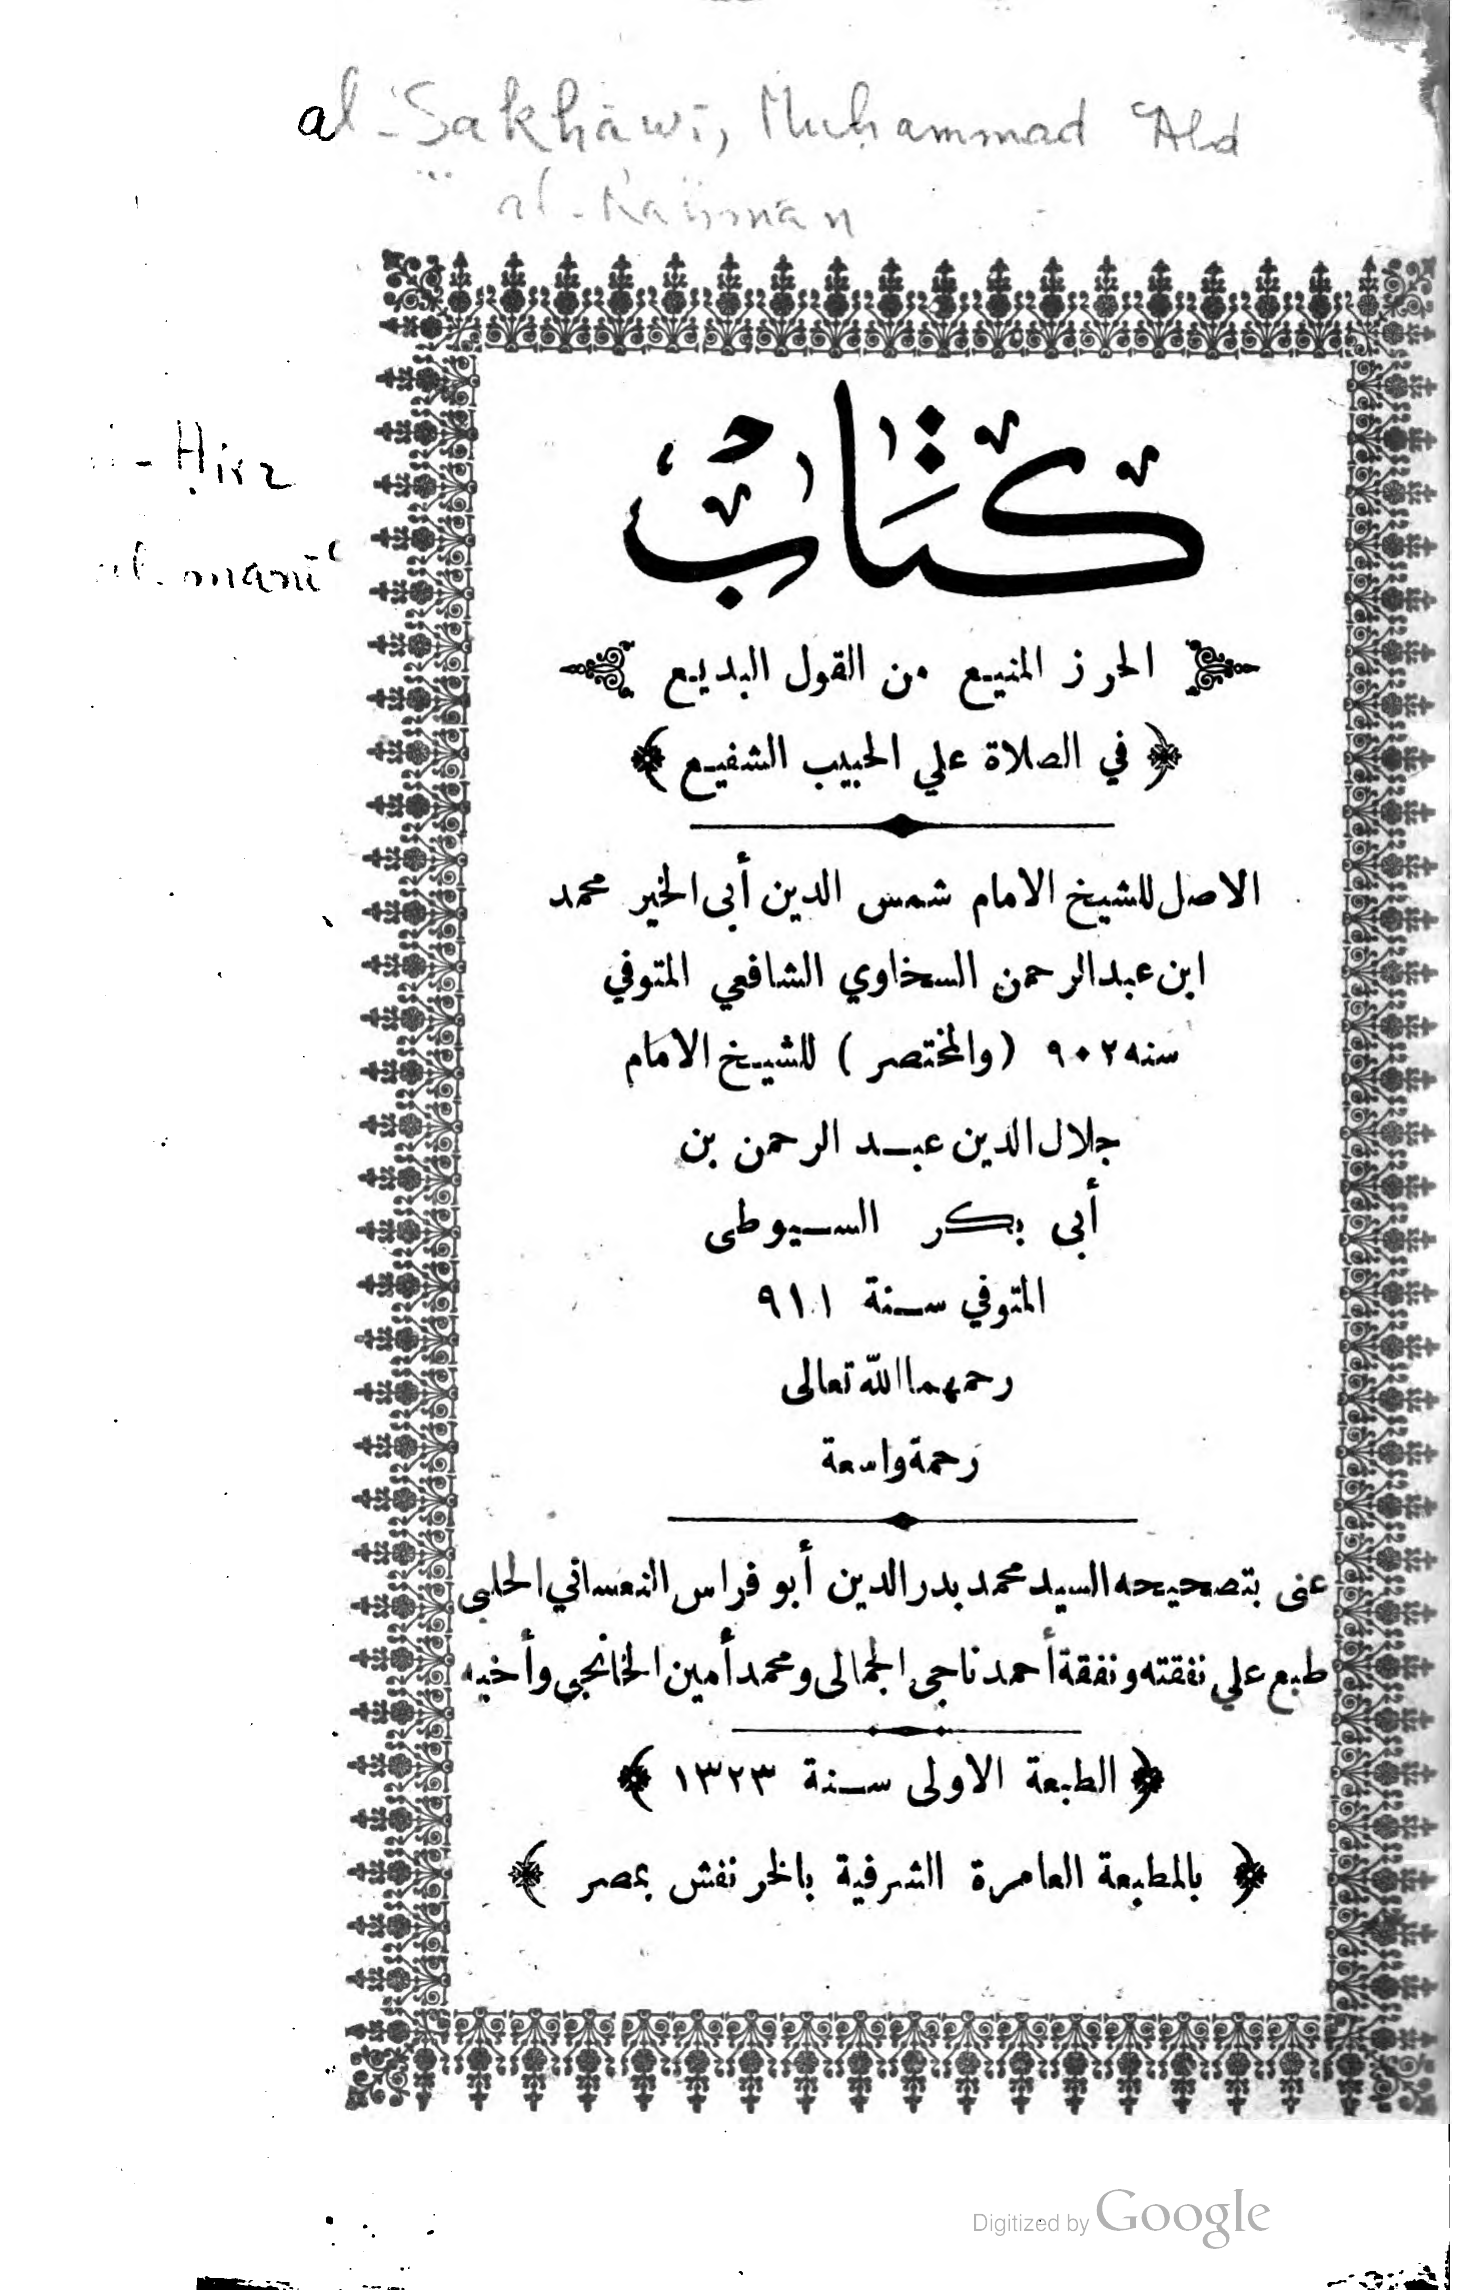 al-Sakhāwī, Muḥammad ʿAbd
al-Raḥmān
كتاب
al-Ḥirz
al-manīʿ
الحرز المنيع من القول البديع
﴿ في الصلاة علي الحبيب الشفيع ﴾
الاصل للشيخ الامام شمس الدين أبى الخير محمد
ابن عبد الرحمن السخاوي الشافعي المتوفي
سنه ٩٠٢ (والمختصر) للشيخ الامام
جلال الدين عبد الرحمن بن
أبى بكر السيوطى
المتوفي سنة ٩١١
رحمهما الله تعالى
رحمة واسعة
عنى بتصحيحه السيد محمد بدر الدين أبو فراس النعساني الحلبى
طبع علي نفقته ونفقة أحمد ناجى الجمالى ومحمد أمين الخانجي وأخيه
﴿ الطبعة الاولى سنة ١٣٢٣ ﴾
﴿ بالمطبعة العامرة الشرفية بالخرنفش بمصر ﴾
Digitized by Google